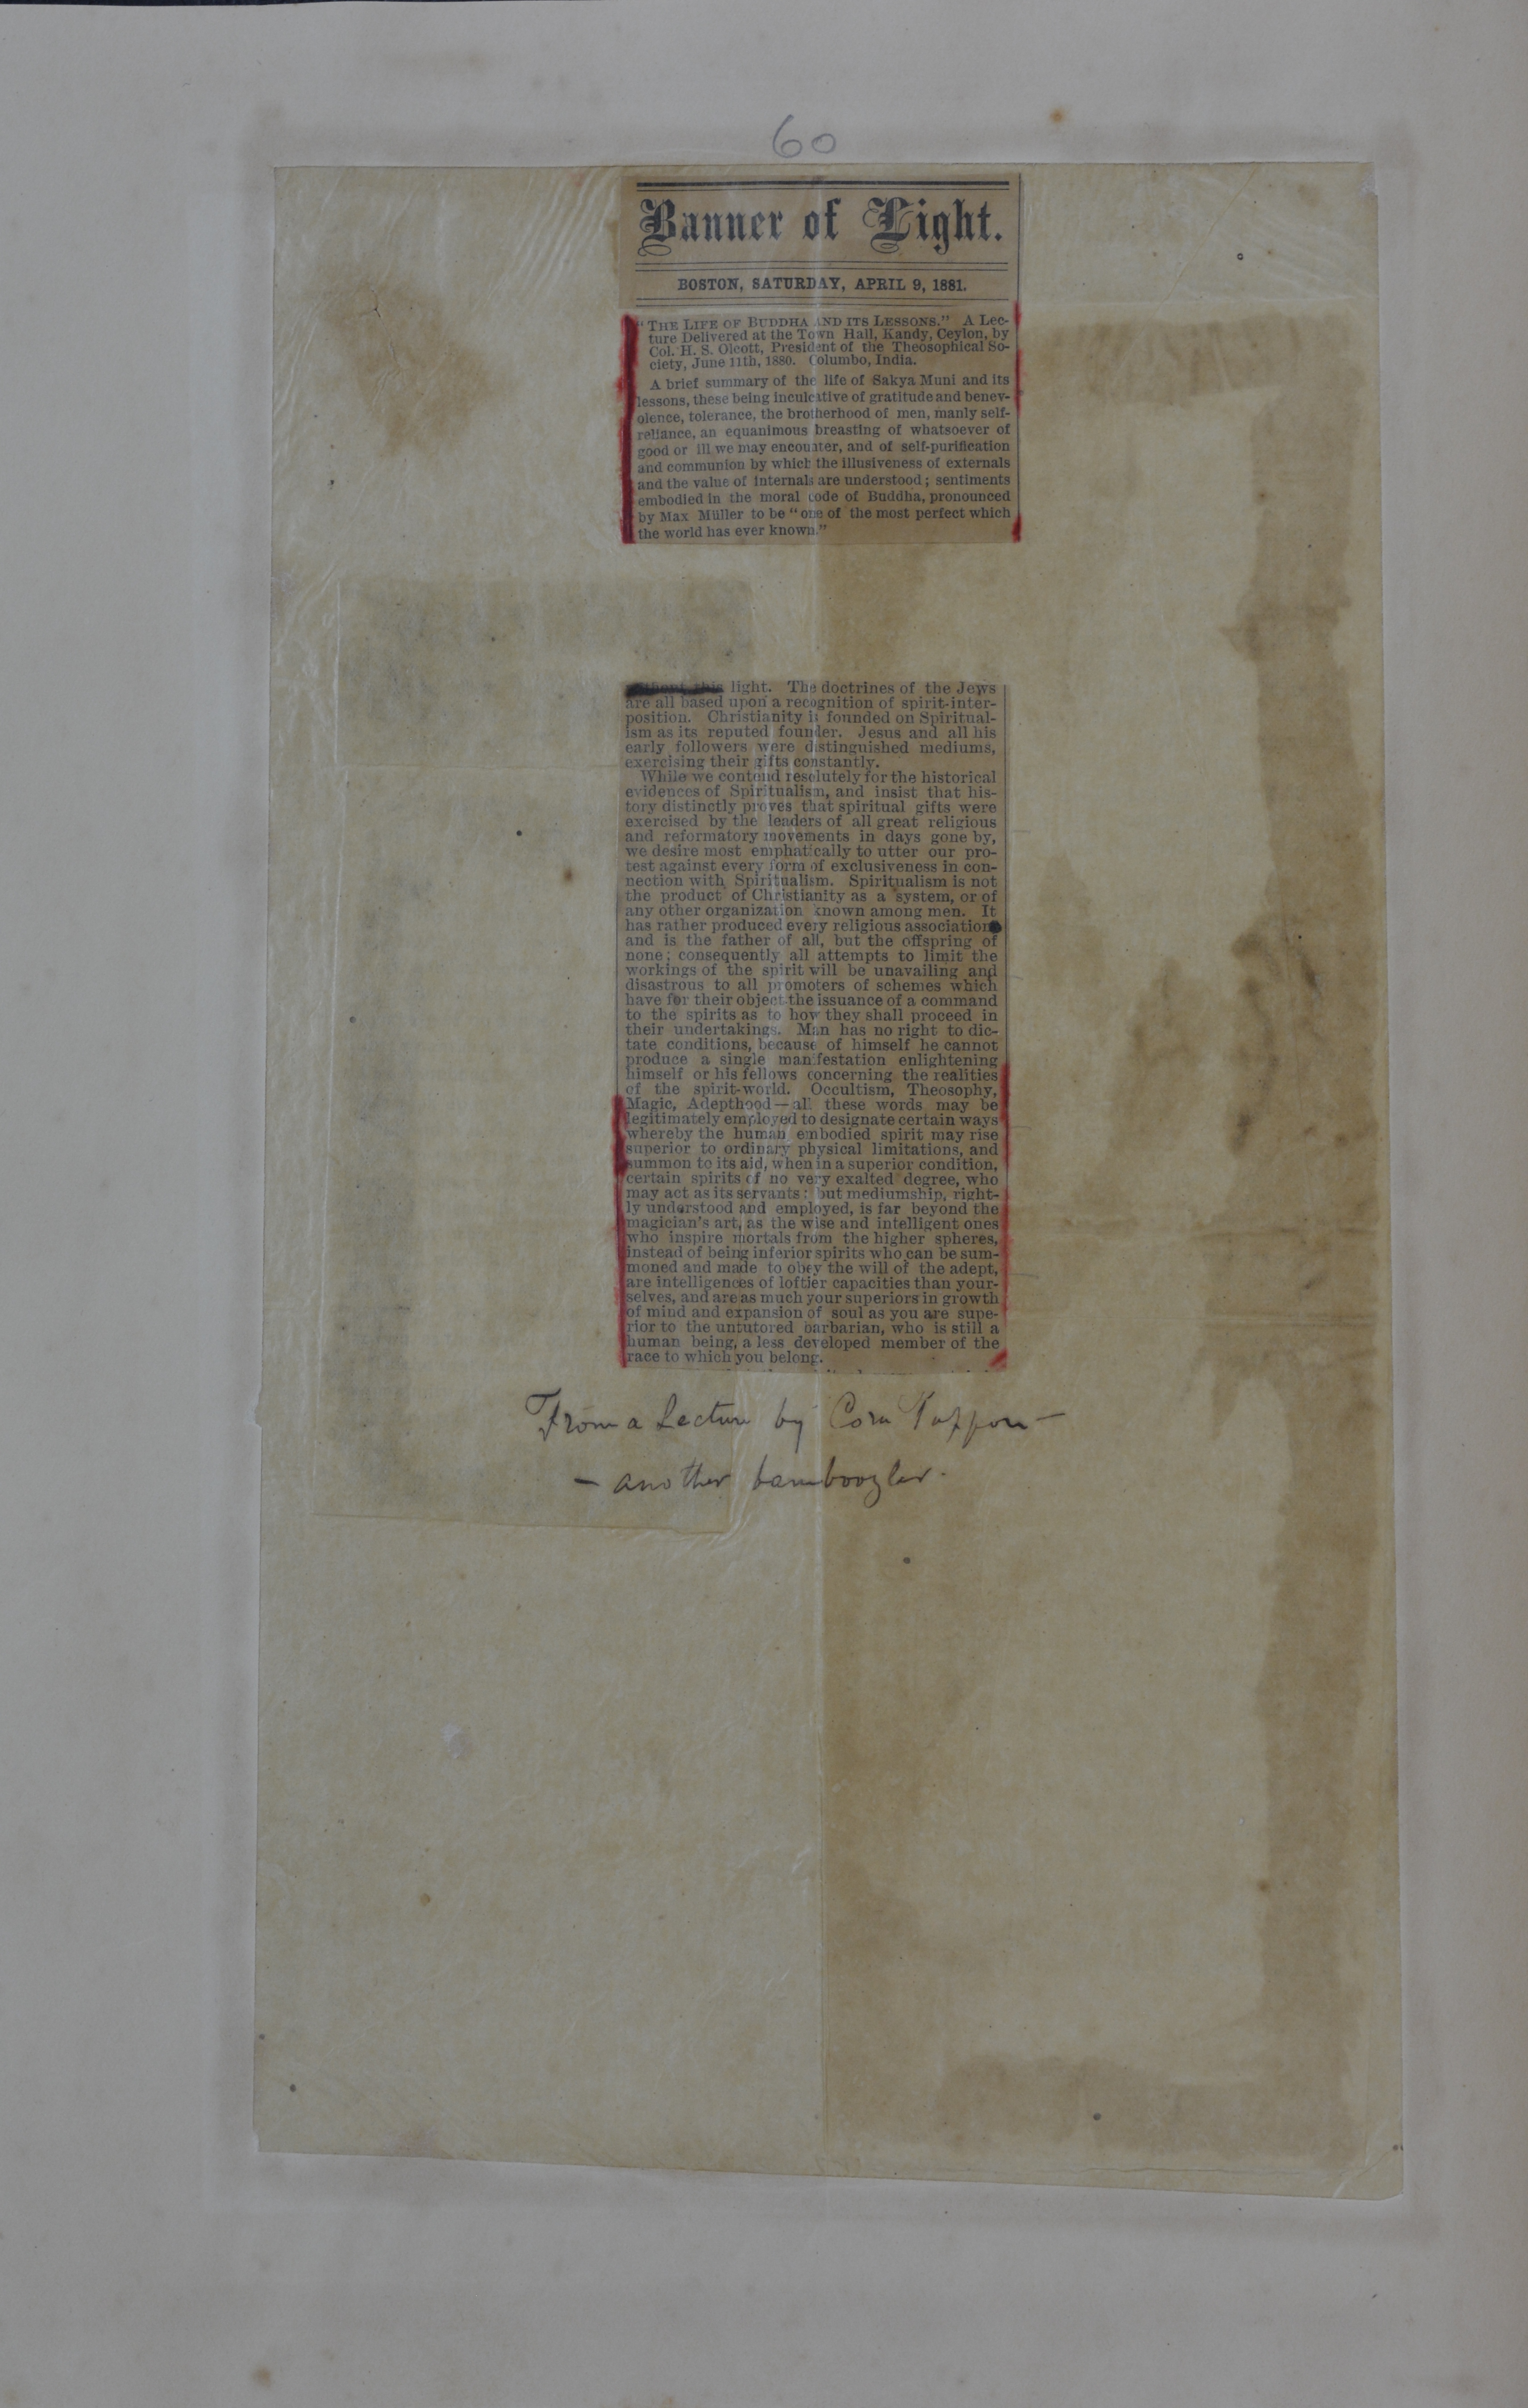 60
Banner of Light.
BOSTON, SATURDAY, APRIL 9, 1881.
"THE LIFE OF BUDDHA AND ITS LESSONS." A Lec-
ture Delivered at the Town Hall, Kandy, Ceylon, by
Col. H. S. Olcott, President of the Theosophical So-
ciety, June 11th, 1880. Columbo, India.
A brief summary of the life of Sakya Muni and its
lessons, these being inculcative of gratitude and benev-
olence, tolerance, the brotherhood of men, manly self-
reliance, an equanimous breasting of whatsoever of
good or ill we may encounter, and of self-purification
and communion by which the illusiveness of externals
and the value of internals are understood; sentiments
embodied in the moral code of Buddha, pronounced
by Max Müller to be "one of the most perfect which
the world has ever known."
light. The doctrines of the Jews
are all based upon a recognition of spirit-inter-
position. Christianity is founded on Spiritual-
ism as its reputed founder. Jesus and all his
early followers were distinguished mediums,
exercising their gifts constantly.
While we contend resolutely for the historical
evidences of Spiritualism, and insist that his-
tory distinctly proves that spiritual gifts were
exercised by the leaders of all great religious
and reformatory movements in days gone by,
we desire most emphatically to utter our pro-
test against every form of exclusiveness in con-
nection with Spiritualism. Spiritualism is not
the product of Christianity as a system, or of
any other organization known among men. It
has rather produced every religious association
and is the father of all, but the offspring of
none; consequently all attempts to limit the
workings of the spirit will be unavailing and
disastrous to all promoters of schemes which
have for their object the issuance of a command
to the spirits as to how they shall proceed in
their undertakings. Man has no right to dic-
tate conditions, because of himself he cannot
produce a single manifestation enlightening
himself or his fellows concerning the realities
of the spirit-world. Occultism, Theosophy,
Magic, Adepthood—all these words may be
legitimately employed to designate certain ways
whereby the human embodied spirit may rise
superior to ordinary physical limitations, and
summon to its aid, when in a superior condition,
certain spirits of no very exalted degree, who
may act as its servants: but mediumship, right-
ly understood and employed, is far beyond the
magician's art, as the wise and intelligent ones
who inspire mortals from the higher spheres,
instead of being inferior spirits who can be sum-
moned and made to obey the will of the adept,
are intelligences of loftier capacities than your-
selves, and are as much your superiors in growth
of mind and expansion of soul as you are supe-
rior to the untutored barbarian, who is still a
human being, a less developed member of the
race to which you belong.
From a Lecture by Cora Tappan —
— another bamboozler.